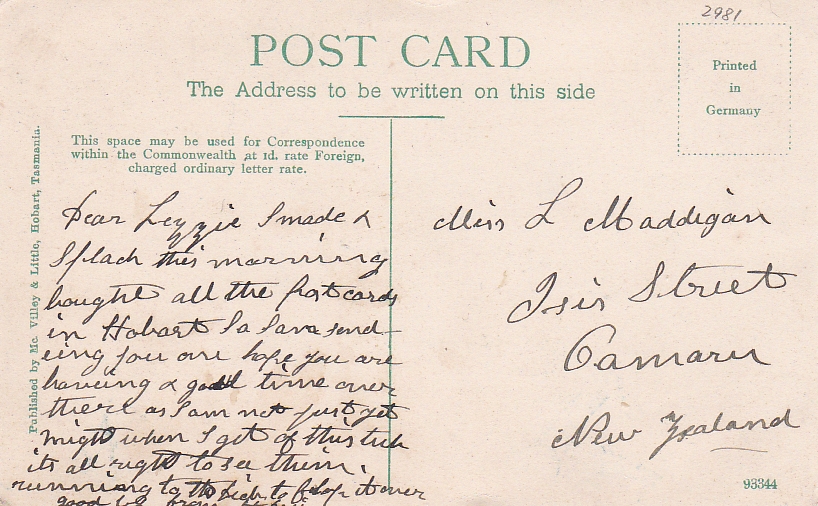 2981
POST CARD
The Address to be written on this side
Printed
in
Germany
This space may be used for Correspondence
within the Commonwealth at 1d. rate Foreign,
charged ordinary letter rate.
Published by Mc. Villey & Little, Hobart, Tasmania.
Dear Lezzie I made a
Splach this morning
bought all the post cards
in Hobart so I am send
ing you one hope you are
having a good time over
there as I am not just yet
might when I get of this tub
its all right to see them
running to the side to flop it over
good by from
Miss L Maddigan
Isis Street
Oamaru
New Zealand
93344